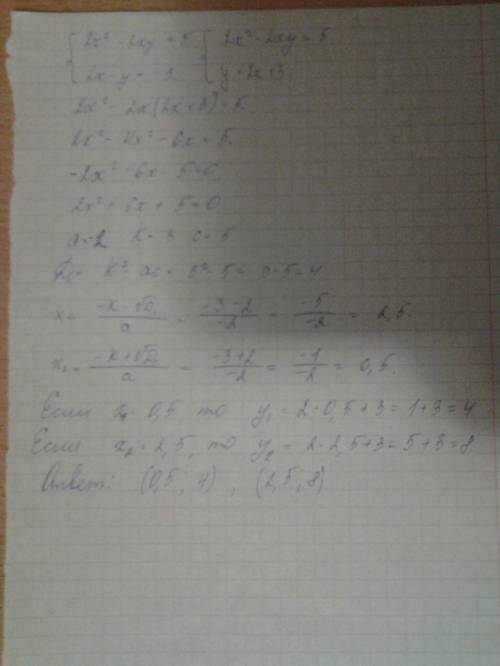 { 2x² - 2xy = 5 { 2x² - 2xy = 5
{ 2x - y = -3 { y = 2x + 3
2x² - 2x(2x + 3) = 5
2x² - 4x² - 6x = 5.
-2x² - 6x - 5 = 0
2x² + 6x + 5 = 0
a = 2 k = 3 c = 5
k² - ac = 3² - 5 = 9 - 5 = 4
x = (-k - √D)/a = (-3 - 2)/-2 = -5/-2 = 2,5.
x₂ = (-k + √D)/a = (-3 + 2)/-2 = -1/-2 = 0,5.
Если x₁ = 0,5, то y₁ = 2 · 0,5 + 3 = 1 + 3 = 4
Если x₂ = 2,5, то y₂ = 2 · 2,5 + 3 = 5 + 3 = 8.
Ответ: (0,5; 4), (2,5; 8)